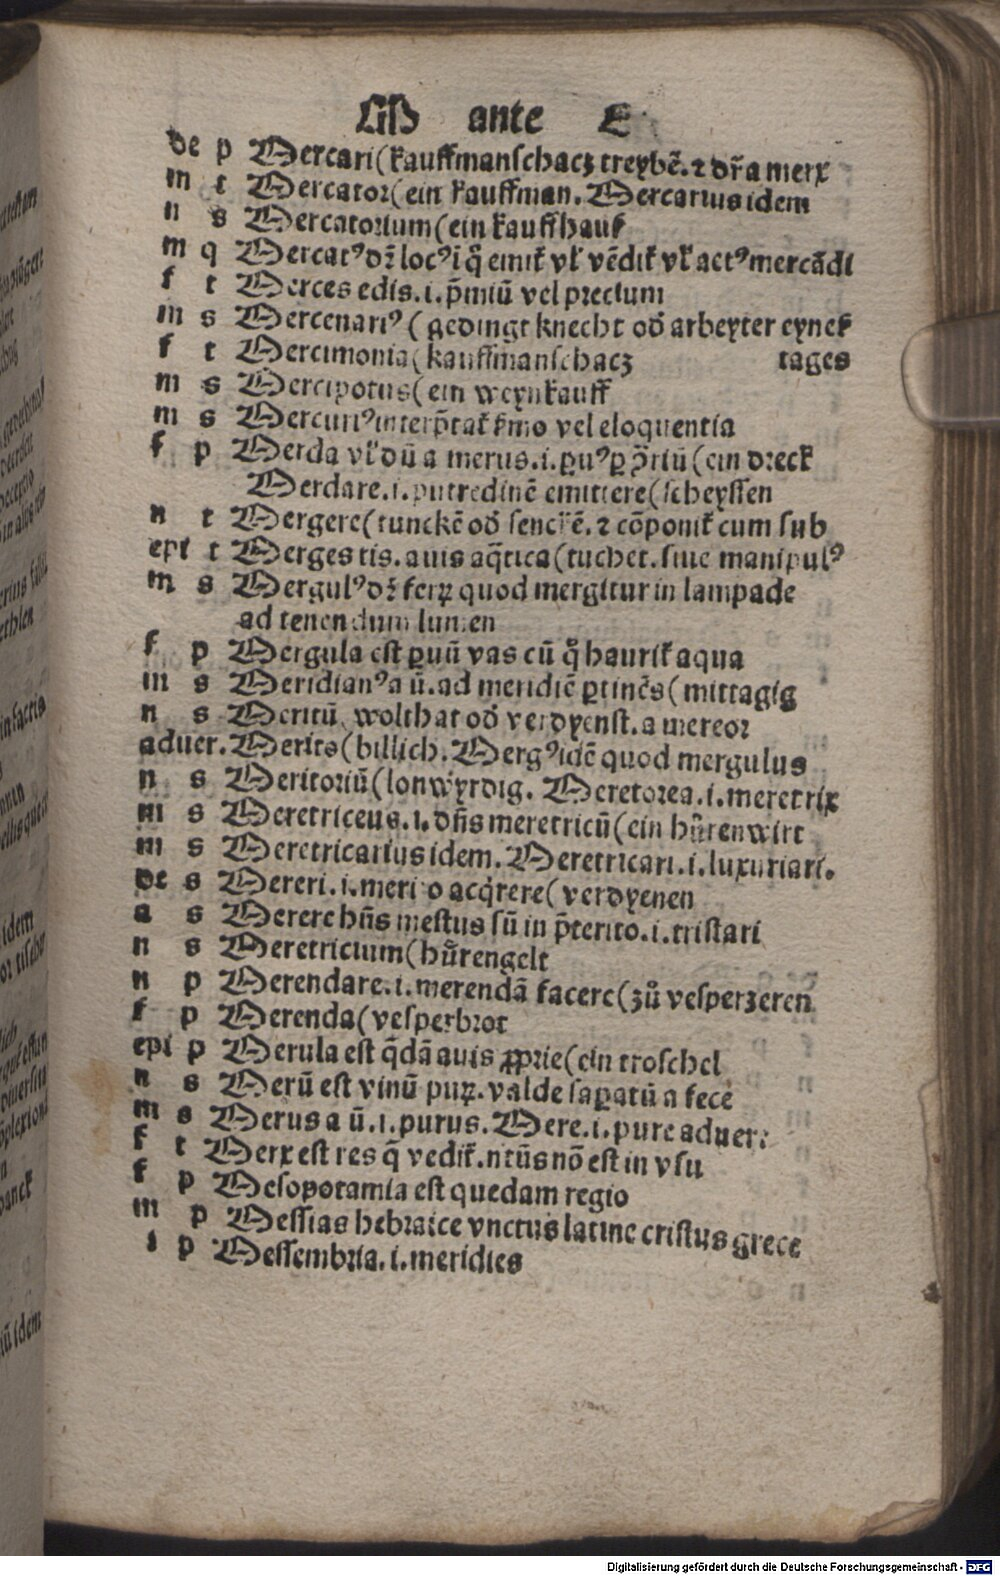 M ante E
de p Mercari(kauffmanschacz treybē. ⁊ dr̄ a merx
m t Mercator(ein kauffman. Mercarius idem
n s Mercatorium(ein kauffhauß
m q Mercatꝰ dꝛ̄ locꝰ ī q̊ emit̄ vl̕ vēdit̄ vl̕ actꝰ mercādi
f t Merces edis .i. p̄miū vel precium
m s Mercenariꝰ(gedingt knecht od̕ arbeyter eyneß
f t Mercimonia(kauffmanschacz tages
m s Mercipotus(ein weynkauff
m s Mercuriꝰ interp̄tat̄ ẜmo vel eloquentia
f p Merda vl̕ dū a merus .i. puꝰ ꝑ ꝯ̄riū(ein dreck
Merdare .i. putredinē emittere(scheyssen
n t Mergere(tunckē od̕ senckē. ⁊ cōponit̄ cum sub
epi t Merges tis. auis aq̄tica(tucher. siue manipulꝰ
m s Mergulꝰ dꝛ̄ ferꝝ quod mergitur in lampade
ad tenendum lumen
f p Mergula est ꝑuū vas cū q̊ haurit̄ aqua
m s Meridianꝰ a ū. ad meridiē ꝑtinēs(mittagig
n s Meritū, wolthat od̕ verdyenst. a mereor
aduer. Merito(billich. Mergꝰ idē quod mergulus
n s Meritoriū(lonwyrdig. Meretorea .i. meretrix
m s Meretriceus .i. dn̄s meretricū(ein hůrenwirt
m s Meretricarius idem. Meretricari .i. luxuriari.
de s Mereri .i. merito acq̄rere(verdyenen
a s Merere hn̄s mestus sū in p̄terito .i. tristari
n s Meretricium(hůrengelt
n p Merendare .i. merendā facere(zů vesperzeren
f p Merenda(vesperbrot
epi p Merula est q̄dā auis ꝓprie(ein troschel
n s Merū est vinū puꝝ. valde sapatū a fece
m s Merus a ū .i. purus. Mere .i. pure aduer:
f t Merx est res q̄ vēdit̄. ntūs nō est in vsu
f p Mesopotamia est quedam regio
m p Messias hebraice vnctus latine cristus grece
i p Messembria .i. meridies
Digitalisierung gefördert durch die Deutsche Forschungsgemeinschaft - DFG